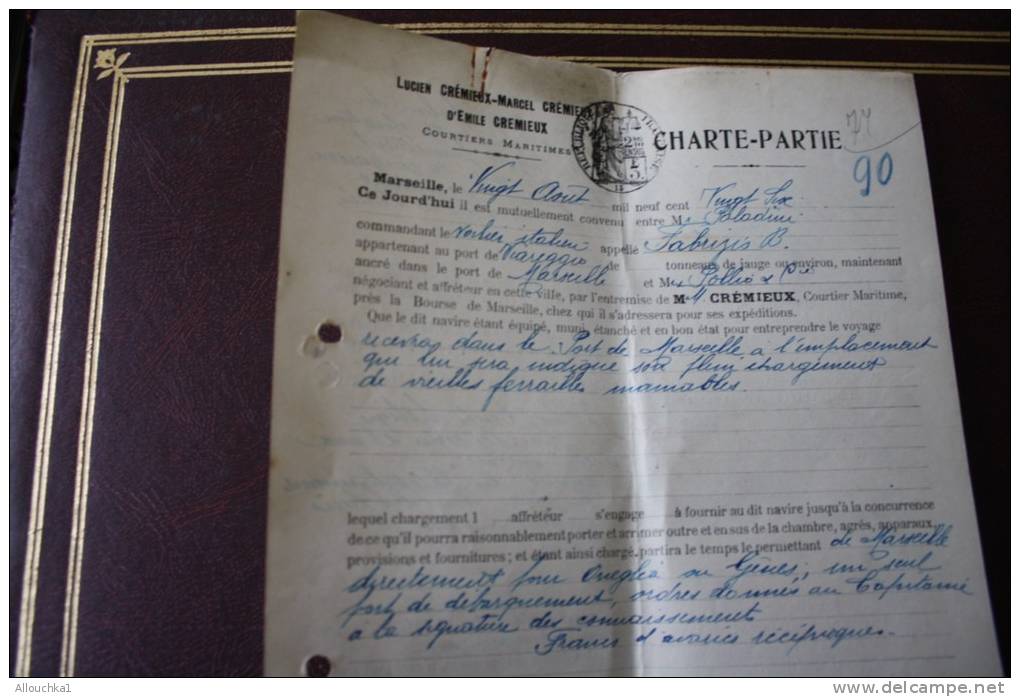 LUCIEN CRÉMIEUX-MARCEL CRÉMIEUX
D'EMILE CREMIEUX
COURTIERS MARITIMES
RÉPUBLIQUE FRANÇAISE
CHARTE-PARTIE
74
90
Marseille, le Vingt Août mil neuf cent Vingt Six
Ce Jourd'hui il est mutuellement convenu entre M Paladini
commandant le voilier italien appellé Fabrizis B.
appartenant au port de Viareggio de tonneaux de jauge ou environ, maintenant
ancré dans le port de Marseille et M Pollio & Cie
négociant et affréteur en cette ville, par l'entremise de M. M. CRÉMIEUX, Courtier Maritime,
près la Bourse de Marseille, chez qui il s'adressera pour ses expéditions.
Que le dit navire étant équipé, muni, étanché et en bon état pour entreprendre le voyage
recevra dans le Port de Marseille à l'emplacement
qui lui sera indiqué son plein chargement
de vieilles ferrailles maniables.
lequel chargement l affréteur s'engage à fournir au dit navire jusqu'à la concurrence
de ce qu'il pourra raisonnablement porter et arrimer outre et en sus de la chambre, agrès, apparaux,
provisions et fournitures; et étant ainsi chargé, partira le temps le permettant de Marseille
directement pour Oneglia ou Gênes, un seul
port de débarquement, ordres donnés au Capitaine
à la signature des connaissements
Francs d'avaries réciproques.
Allouchka1
delcampe.net